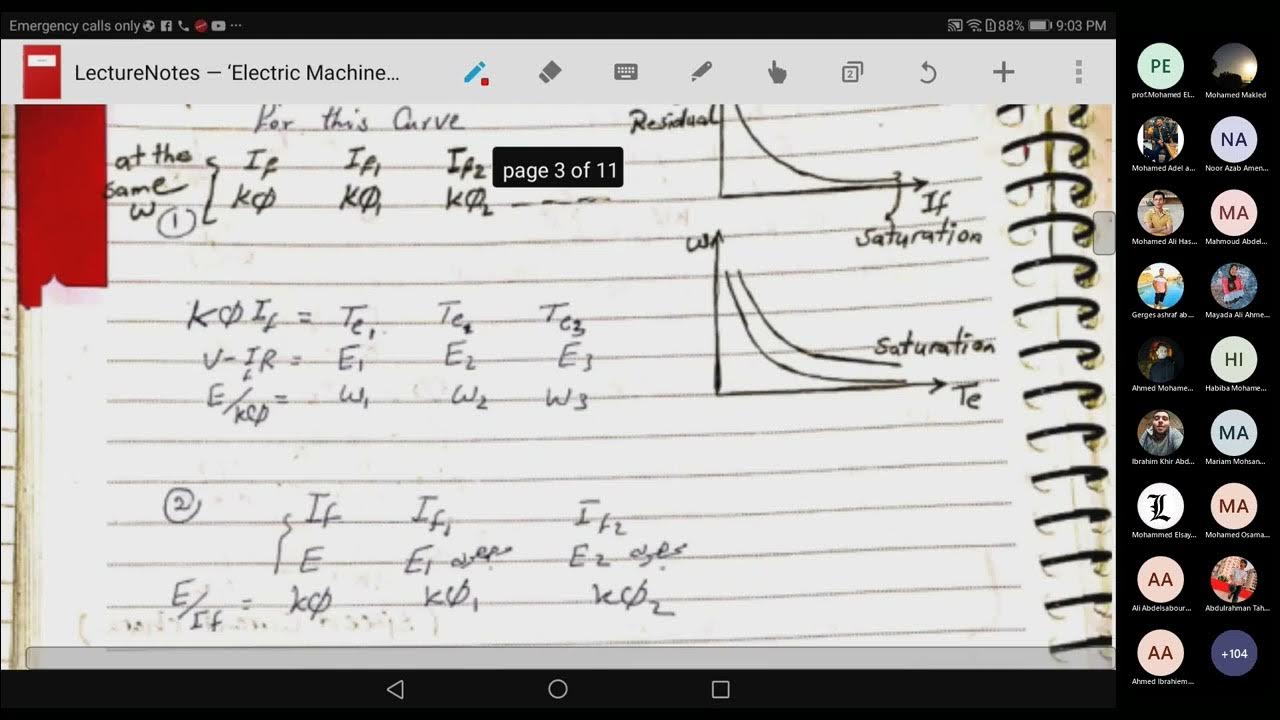 Emergency calls only ...
88% 9:03 PM
LectureNotes — ‘Electric Machine...
2
page 3 of 11
For this Curve
at the same ω ①
If If1 If2
kΦ kΦ1 kΦ2 ----
Residual
If
Saturation
ω
Saturation
Te
kΦIf = Te1 Te2 Te3
V-IfR = E1 E2 E3
E/kΦ = ω1 ω2 ω3
②
If If1 If2
E E1 E2
E/If = kΦ kΦ1 kΦ2
PE
prof.Mohamed El...
Mohamed Makled
Mohamed Adel a...
NA
Noor Azab Amen...
Mohamed Ali Has...
MA
Mahmoud Abdel...
Gerges ashraf ab...
Mayada Ali Ahme...
Ahmed Mohame...
HI
Habiba Mohame...
Ibrahim Khir Abd...
MA
Mariam Mohsan...
L
Mohammed Elsay...
MA
Mohamed Osama...
AA
Ali Abdelsabour...
Abdulrahman Tah...
AA
Ahmed Ibrahiem...
+104